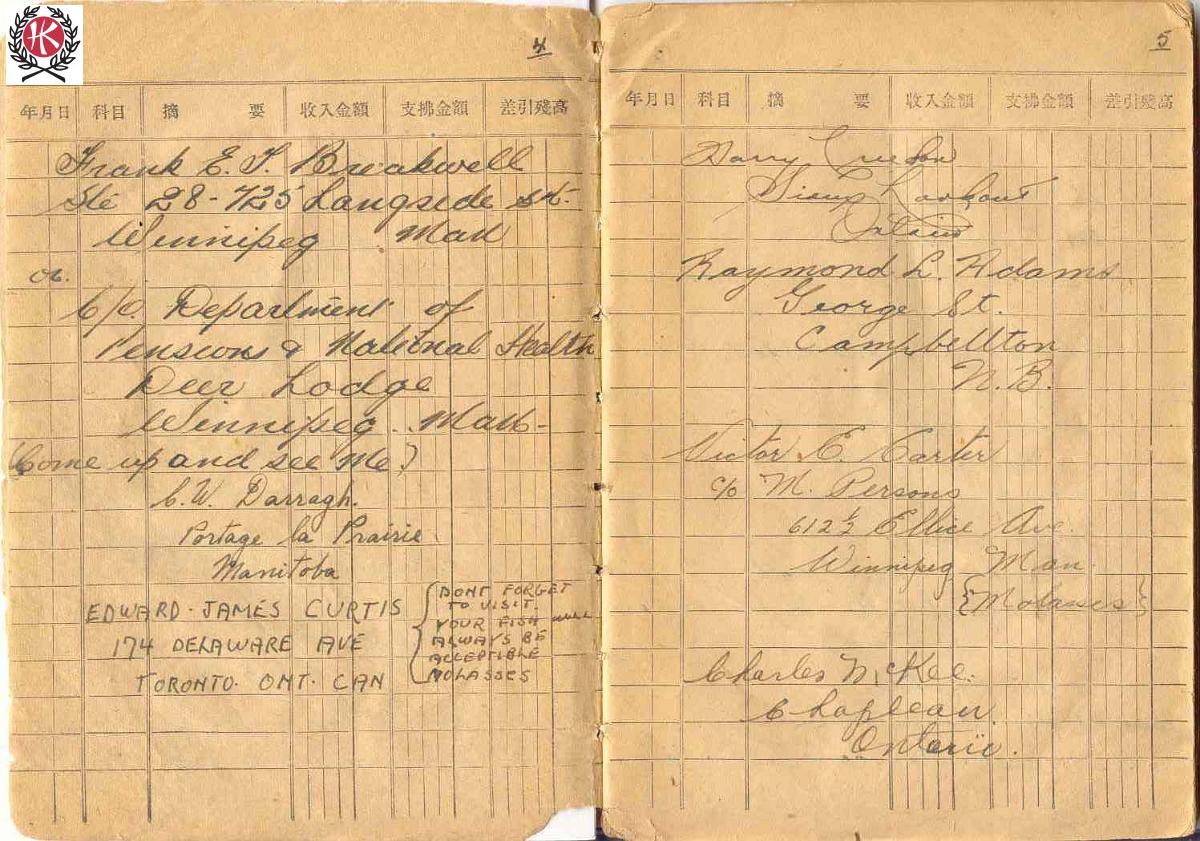 HK
4
年月日 科目 摘要 收入金額 支拂金額 差引殘高
Frank E. J. Breakwell
Ste 28-725 Langside st.
Winnipeg Man
or.
c/o. Department of
Pensions & National Health
Deer Lodge
Winnipeg. Man-
(Come up and see me)
C. W. Darragh.
Portage la Prairie
Manitoba
EDWARD. JAMES CURTIS
174 DELAWARE AVE
TORONTO. ONT. CAN
DONT FORGET
TO VISIT.
YOUR FISH WILL
ALWAYS BE
ACCEPTIBLE
MOLASSES
5
年月日 科目 摘要 收入金額 支拂金額 差引殘高
Harry
Sioux Lookout
Ontario
Raymond L. Adams
George St.
Campbellton
N.B.
Victor E. Carter
c/o M. Persons
612½ Ellice Ave.
Winnipeg Man.
{Molasses}
Charles McKee.
Chapleau.
Ontario.